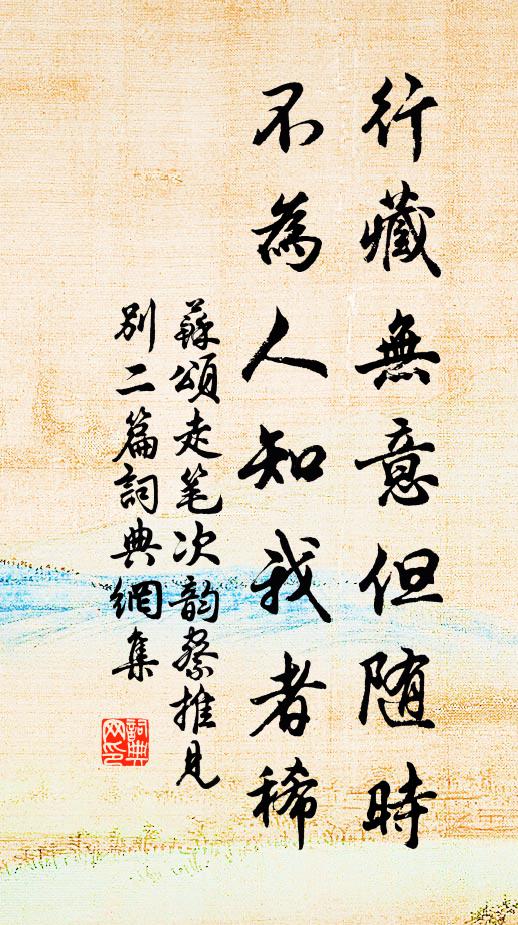 行藏無意但随時
不為人知我者稀
蘇頌走笔次韵蔡推見
別二篇詞典網集
詞典网印